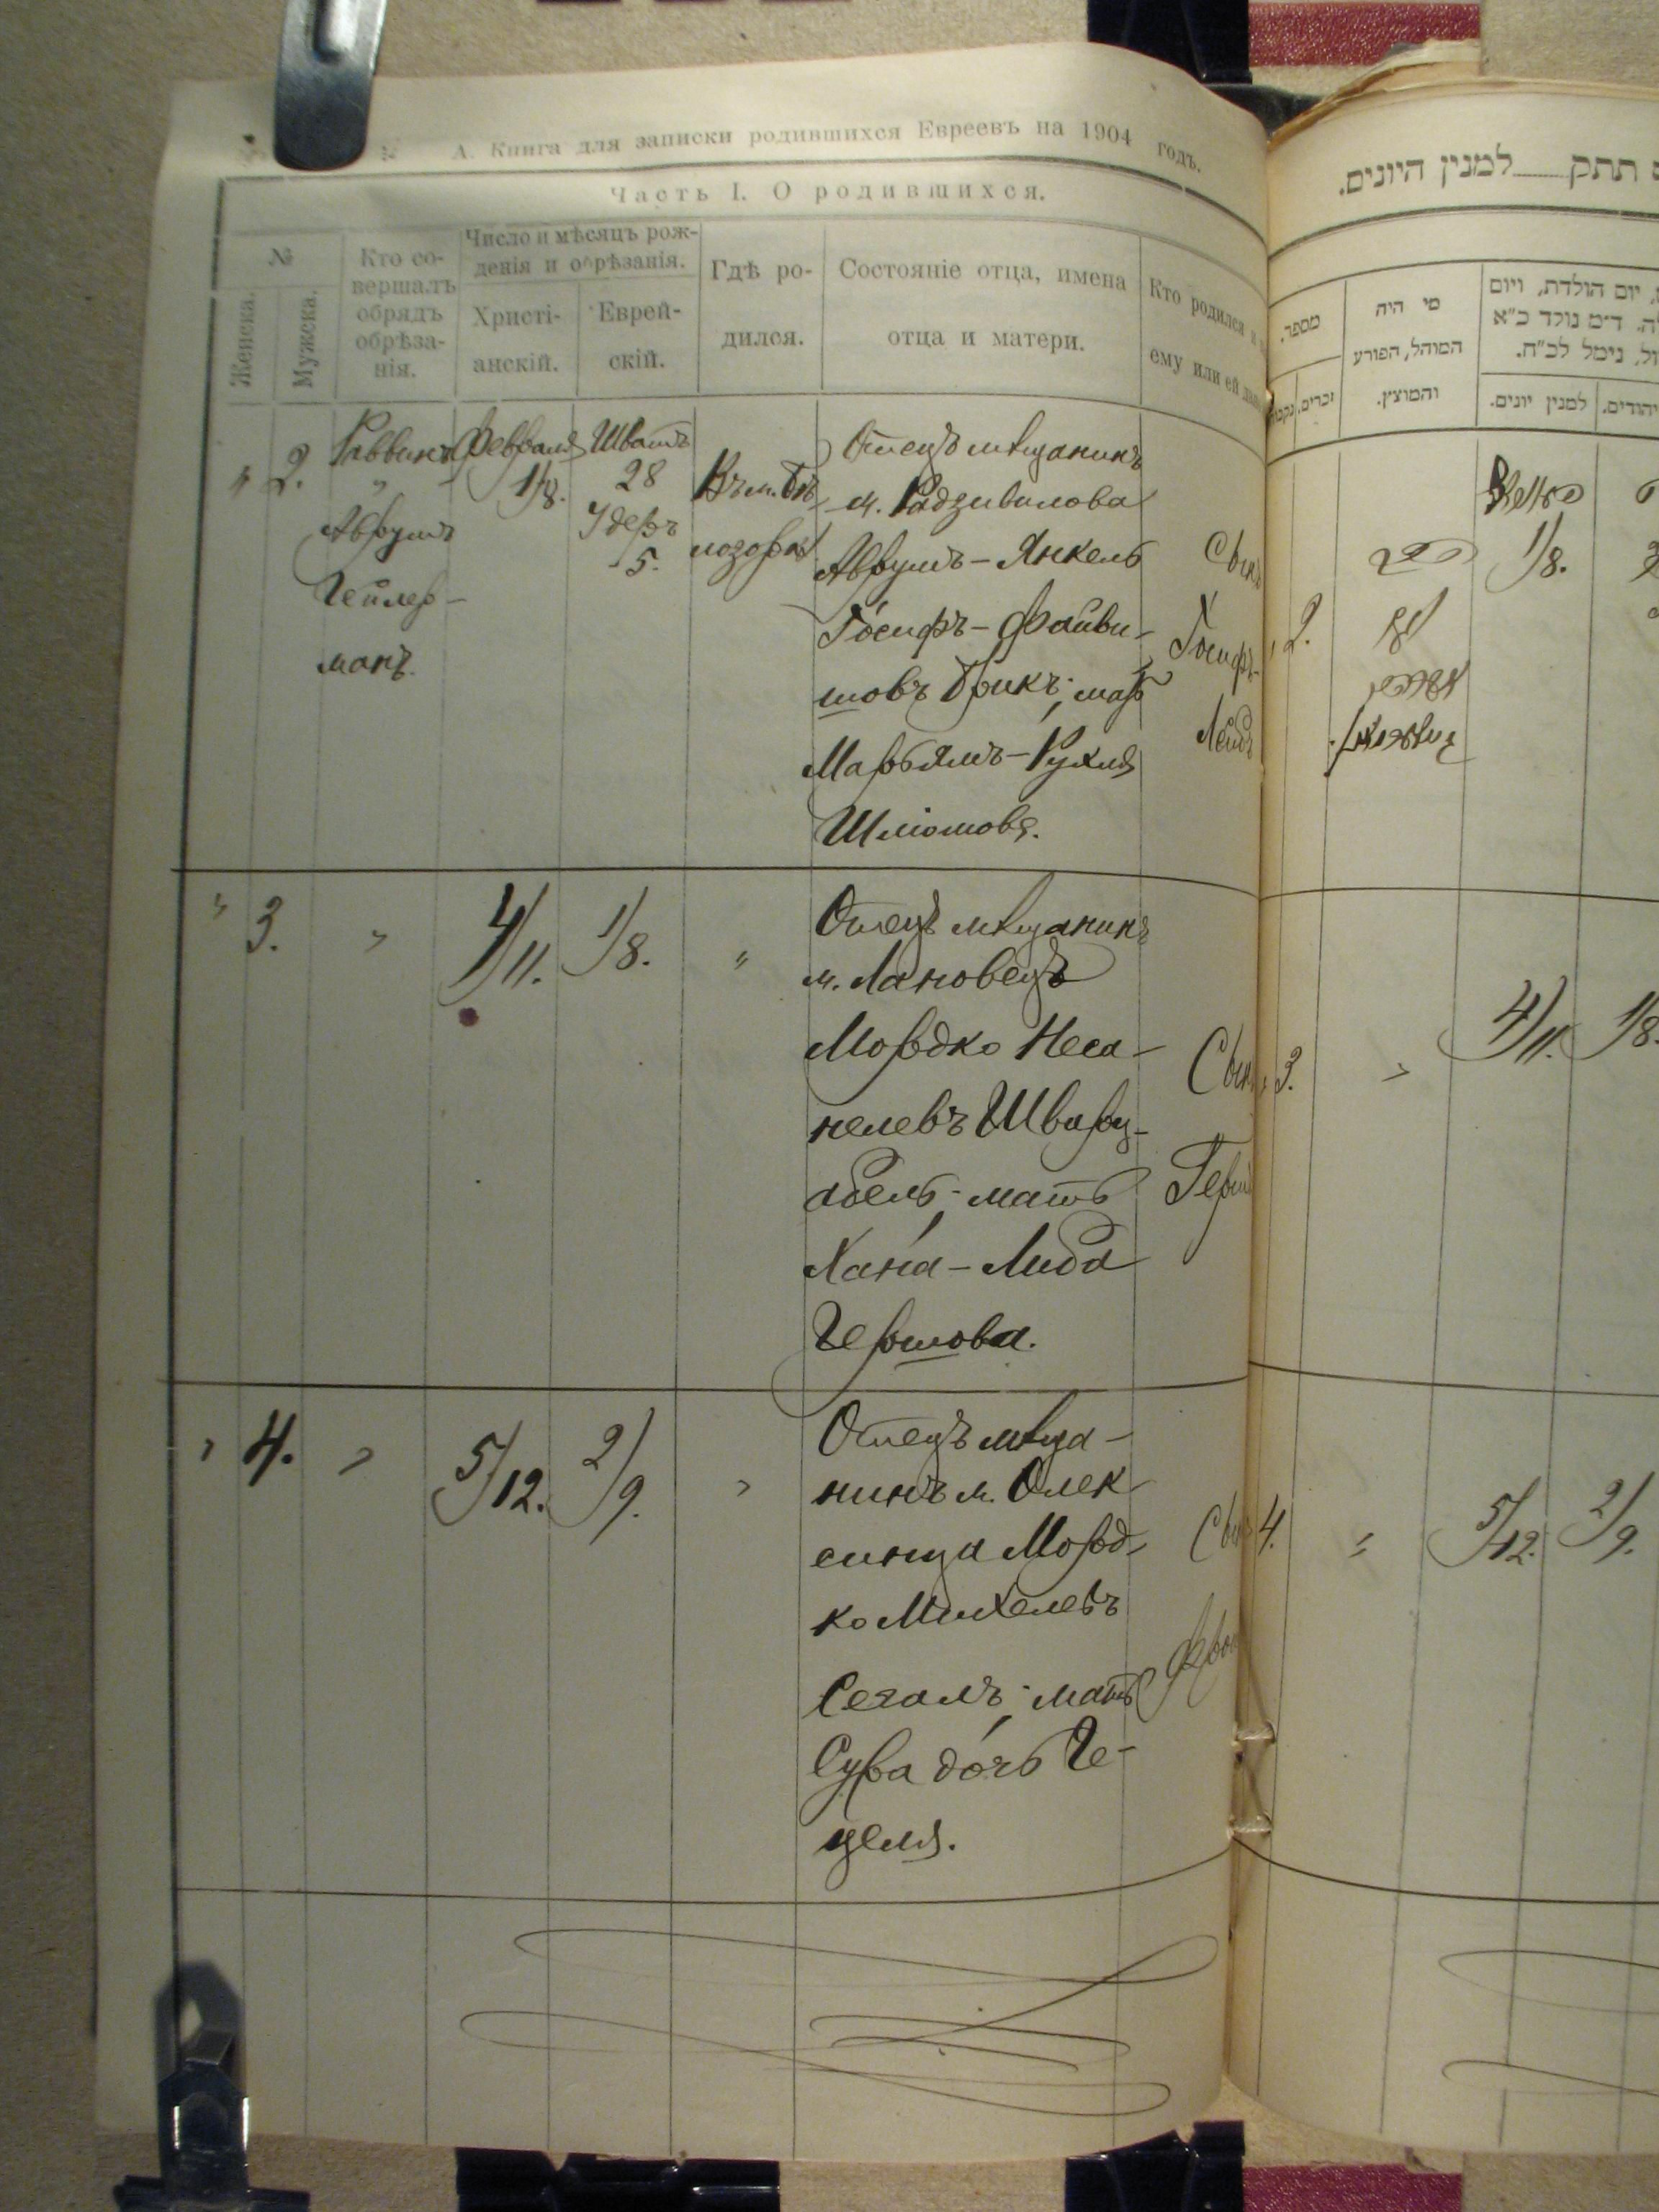 А. Книга для записки родившихся Евреевъ на 1904 годъ.
Часть I. О родившихся.
№
Женска.
Мужска.
Кто со-
вершалъ
обрядъ
обрѣза-
нія.
Число и мѣсяцъ рож-
денія и обрѣзанія.
Христі-
анскій.
Еврей-
скій.
Гдѣ ро-
дился.
Состояніе отца, имена
отца и матери.
Кто родился и
ему или ей
" 2.
Раввинъ
"
Аврумъ
Гейлер-
манъ.
Февраля
1/8.
Шватъ
28
Удеръ
5.
Въ м. Бѣ-
лозорка
Отецъ мѣщанинъ
м. Радзивилова
Аврумъ-Янкель
Іосифъ-Файви-
шовъ Брикъ; мать
Марьямъ-Рухля
Шліомова.
Сынъ
Іосифъ-
Лейбъ
" 3.
"
4/11.
1/8.
"
Отецъ мѣщанинъ
м. Лановецъ
Мордко Неса-
нелевъ Шварц-
абель; мать
Хана-Либа
Гершова.
Сынъ
" 4.
"
5/12.
2/9.
"
Отецъ мѣща-
нинъ м. Олек-
синца Морд-
ко Михелевъ
Сегалъ; мать
Сура дочь Ге-
целя.
Сынъ
תתק למנין היונים.
מספר.
זכרים.
מי היה
המוהל, הפורע
והמוצץ.
יום הולדת, ויום
ד״מ נולד כ״א
נימל לכ״ח.
למנין יונים.
יהודים.
2.
1/8.
3.
"
4/11.
1/8.
4.
"
5/12.
2/9.